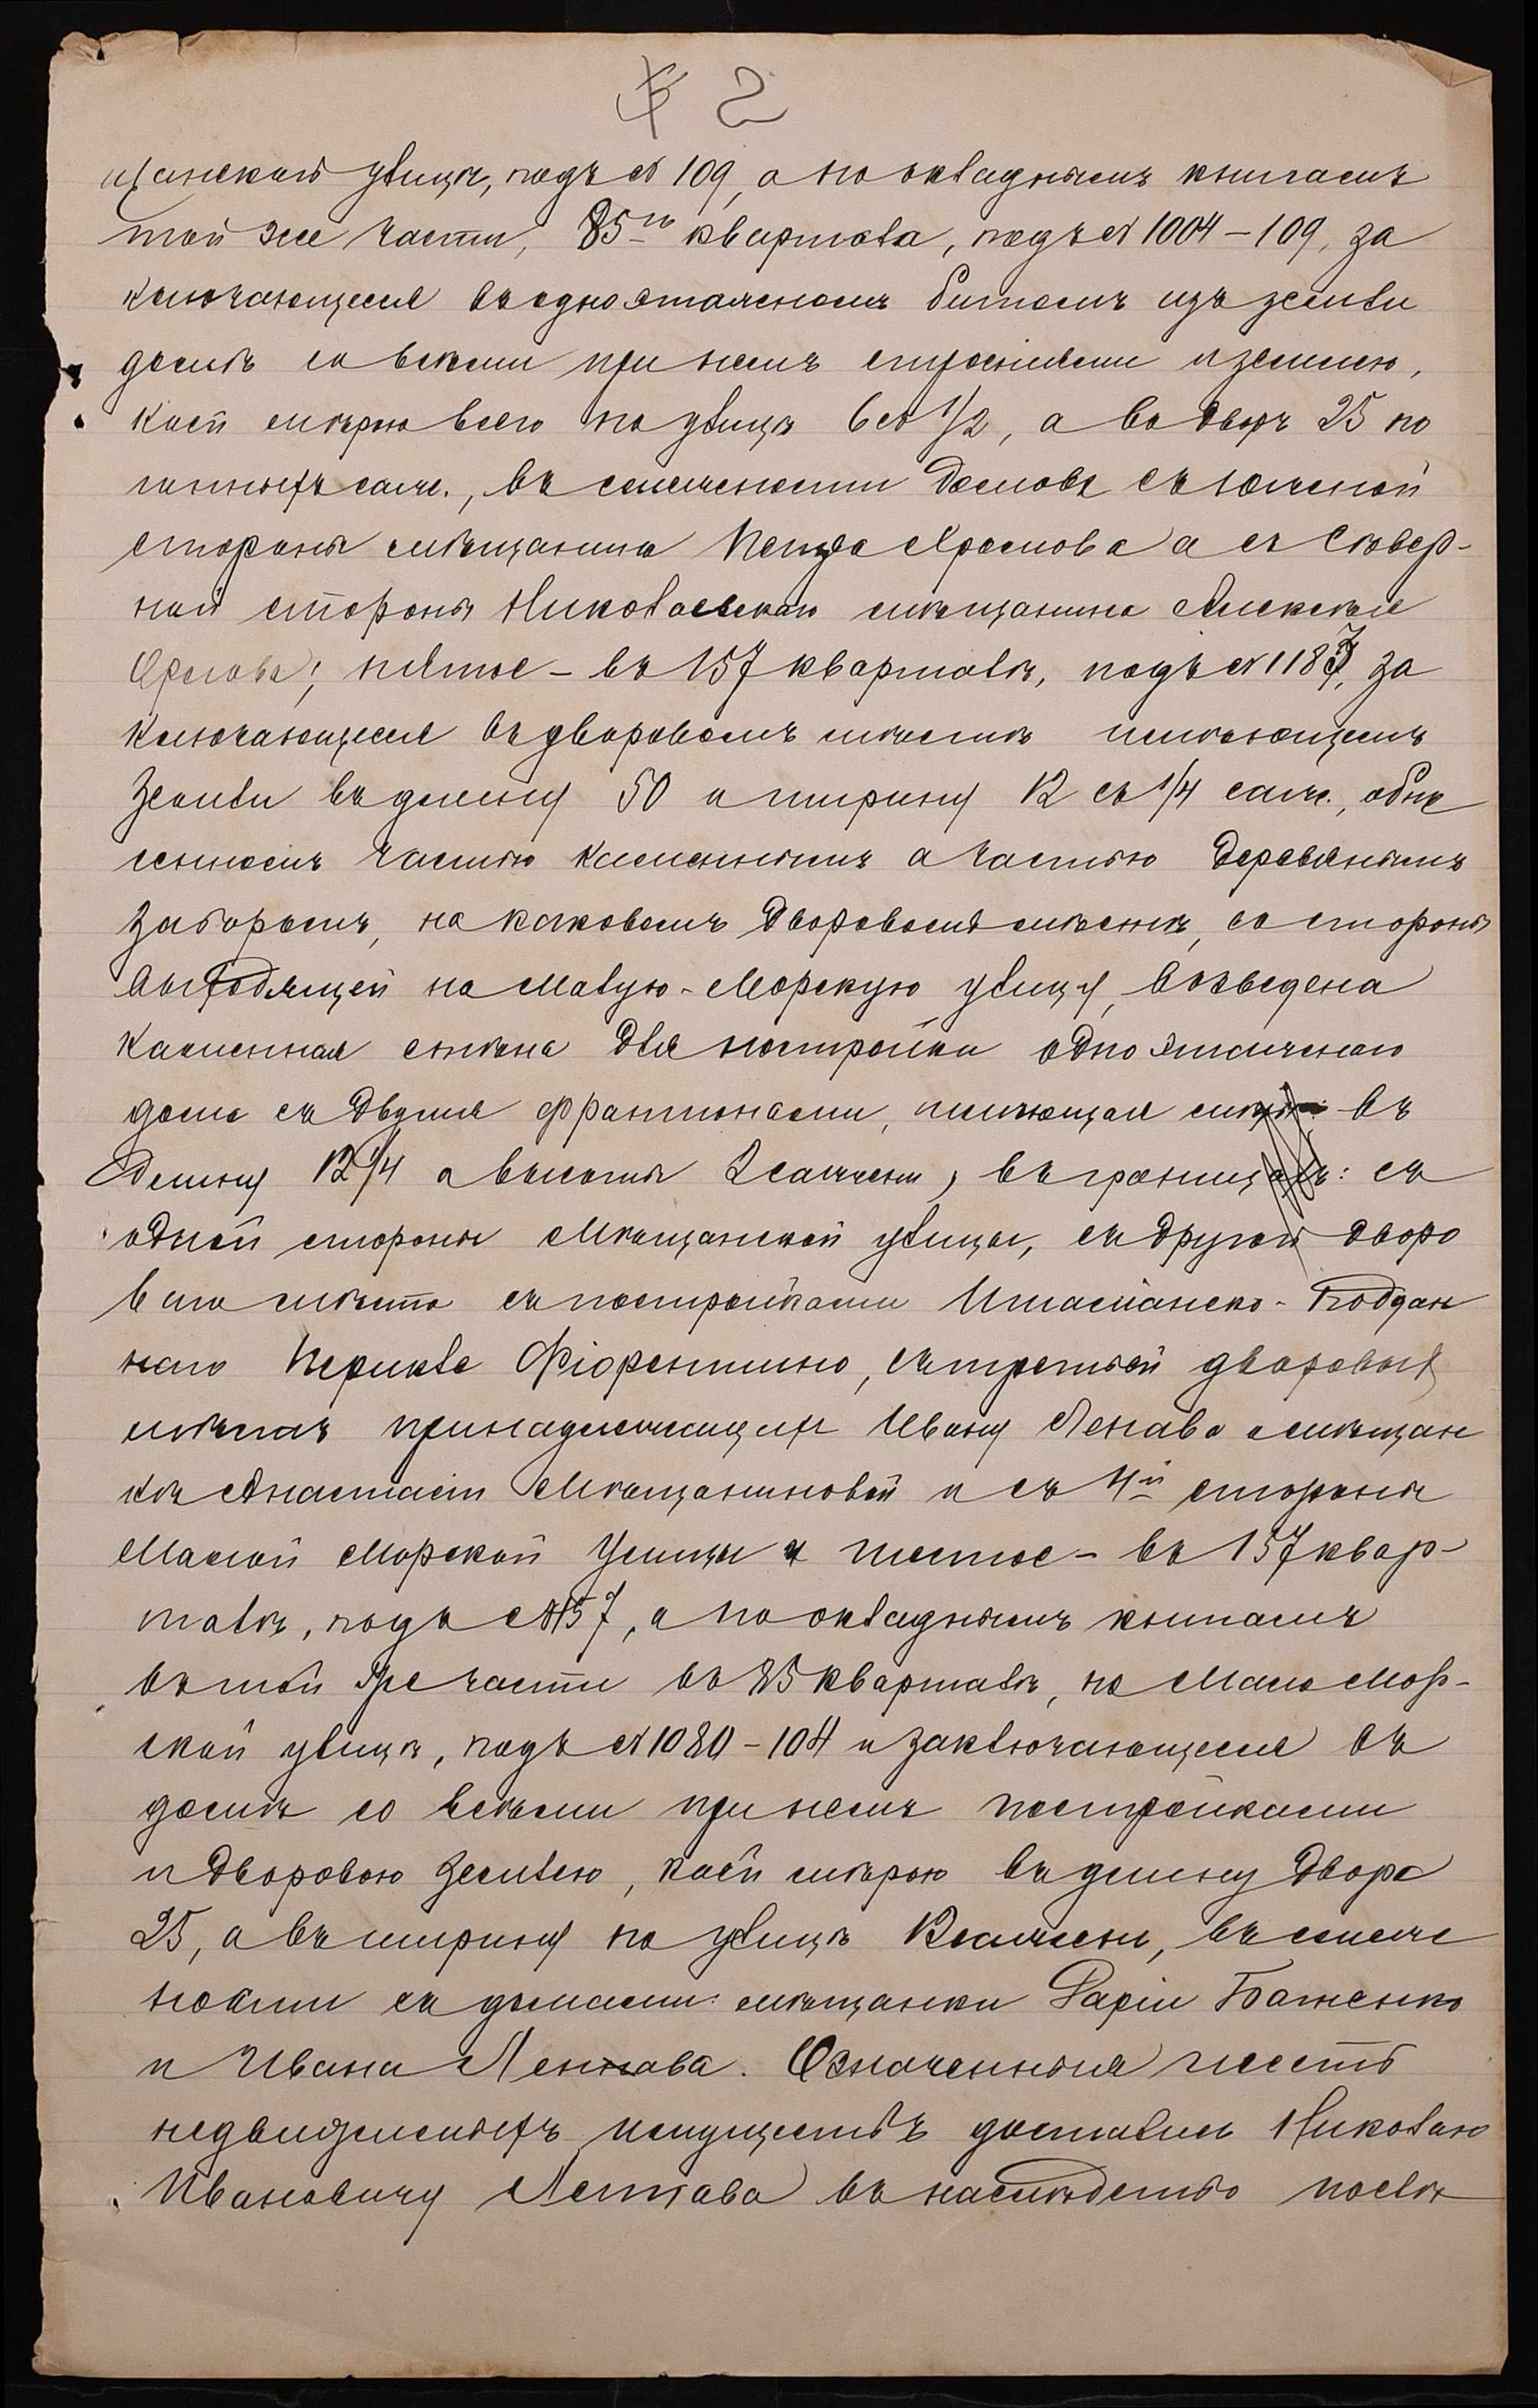 2
щанской улицѣ, подъ № 109, а по окладнымъ книгамъ
той же части, 85го квартала, подъ № 1004-109, за
ключающееся въ одноэтажномъ битомъ изъ земли
домѣ со всѣми при немъ строеніями и землею,
коей мѣрою всего по улицѣ 6 съ 1/2, а во дворъ 25 по
гонныхъ саж., въ смежности домовъ съ южной
стороны мѣщанина а съ Сѣвер-
ной стороны Николаевскаго мѣщанина Алексѣя
Орлова; пятое - въ 157 кварталѣ, подъ № за
ключающееся въ дворовомъ мѣстѣ имѣющемъ
земли въ длину 50 и ширину 12 съ 1/4 саж., обне
сенномъ частію каменнымъ а частію деревянымъ
заборомъ, на каковомъ дворовомъ мѣстѣ, со стороны
выходящей на Малую-Морскую улицу, возведена
каменная стѣна для постройки одноэтажнаго
дома съ двумя фронтонами, имѣющая въ
длину 12 1/4 а высоты 2 сажени, въ границахъ: съ
одной стороны Мѣщанской улицы, съ другой дворо
ваго мѣста съ постройками Итальянско-Поддан
наго Перикле Фіорентино, съ третьей дворовыхъ
мѣстъ принадлежащихъ Ивану Ленава и мѣщан
кѣ Анастасіи Мѣщаниновой и съ 4й стороны
Малой Морской улицы и шестое - въ 157 квар-
талѣ, подъ № 157, а по окладнымъ книгамъ
въ той же части въ 85 кварталѣ, на Мало Мор-
ской улицѣ, подъ № 1080-104 и заключающееся въ
домѣ со всѣми при немъ постройками
и дворовою землею, коей мѣрою въ длину двора
25, а въ ширину по улицѣ 12 сажень, въ смеж
ности съ домами: мѣщанки Баженко
и Ивана Ленава. Означенныя шесть
недвижимыхъ имуществъ достались Николаю
Ивановичу Лентава въ наслѣдство послѣ